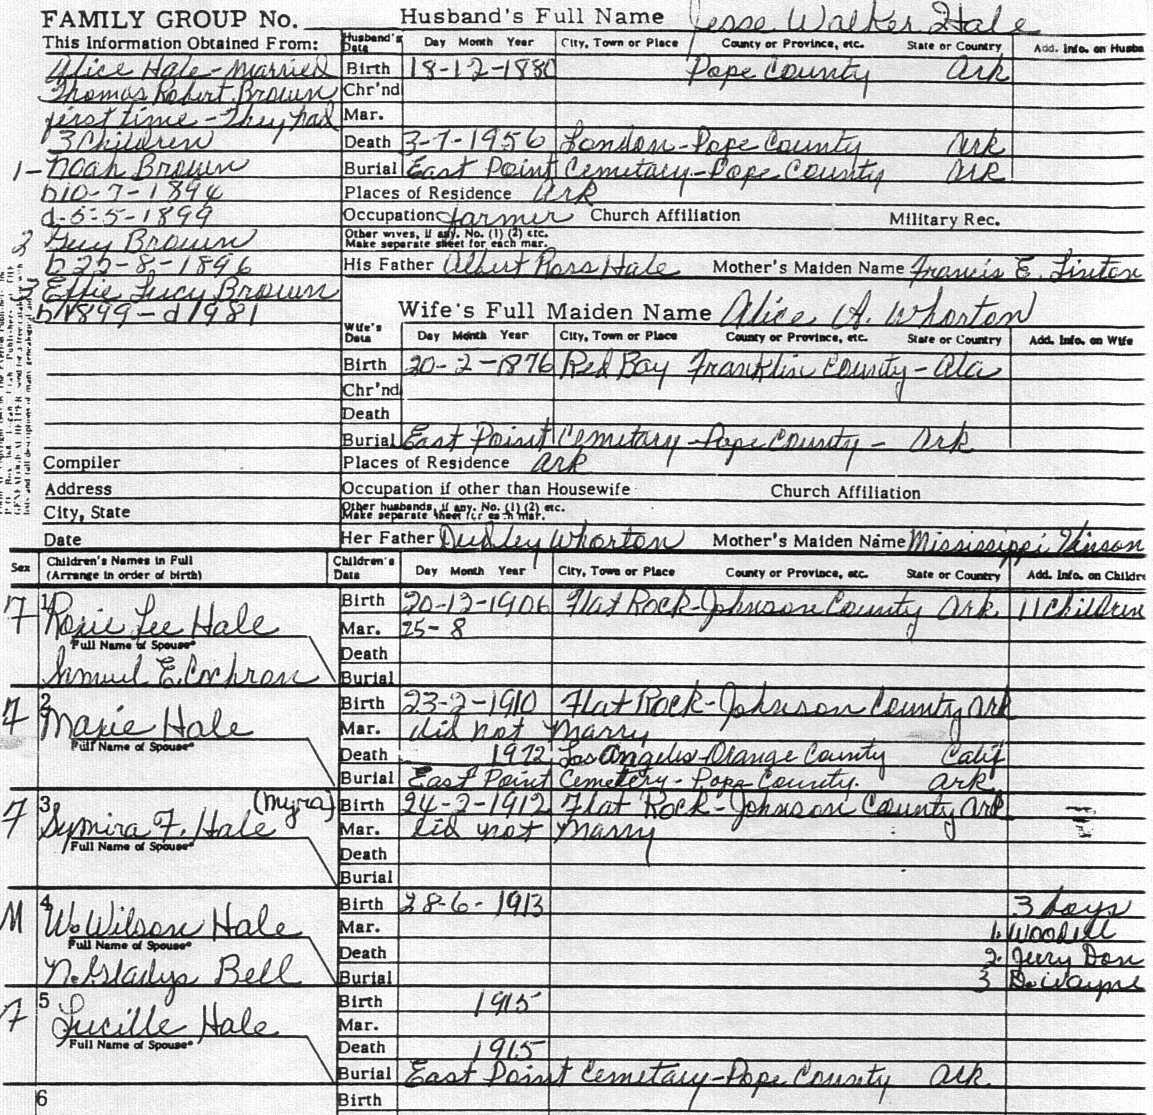 FAMILY GROUP No. Husband's Full Name Jesse Walker Hale
This Information Obtained From: Husband's Data Day Month Year City, Town or Place County or Province, etc. State or Country Add. Info. on Husba
Alice Hale - married Birth 18-12-1880 Pope County Ark
Thomas Robert Brown Chr'nd
first time - They had Mar.
3 Children Death 3-7-1956 London - Pope County Ark
1- Noah Brown Burial East Point Cemetary - Pope County Ark
b 10-7-1894 Places of Residence Ark
d-5-5-1899 Occupation farmer Church Affiliation Military Rec.
2 Guy Brown Other wives, if any. No. (1) (2) etc. Make separate sheet for each mar.
b 25-8-1896 His Father Albert Ross Hale Mother's Maiden Name Francis E. Linton
3 Effie Lucy Brown
b 1899 - d 1981 Wife's Full Maiden Name Alice A. Whorton
Wife's Data Day Month Year City, Town or Place County or Province, etc. State or Country Add. Info. on Wife
Birth 20-2-1876 Red Bay Franklin County - Ala
Chr'nd
Death
Burial East Point Cemetary - Pope County - Ark
Compiler Places of Residence Ark
Address Occupation if other than Housewife Church Affiliation
City, State Other husbands, if any. No. (1) (2) etc. Make separate sheet for each mar.
Date Her Father Dudley Whorton Mother's Maiden Name Mississippi Vinson
Sex Children's Names in Full (Arrange in order of birth) Children's Data Day Month Year City, Town or Place County or Province, etc. State or Country Add. Info. on Childre
F 1 Rosie Lee Hale Birth 20-12-1906 Flat Rock - Johnson County Ark 11 Children
Mar. 25-8
Full Name of Spouse* Death
Samuel E. Cochran Burial
F 2 Marie Hale Birth 23-2-1910 Flat Rock - Johnson County Ark
Mar. did not Marry
Full Name of Spouse* Death 1972 Los Angeles - Orange County Calif
Burial East Point Cemetery - Pope County. Ark
F 3 Symira F. Hale (Myra) Birth 24-2-1912 Flat Rock - Johnson County Ark
Mar. did not Marry
Full Name of Spouse* Death
Burial
M 4 W. Wilson Hale Birth 28-6-1913 3 boys
Mar. 1. Woodell
Full Name of Spouse* Death 2. Jerry Don
N. Gladys Bell Burial 3 DeWayne
F 5 Lucille Hale Birth 1915
Mar.
Full Name of Spouse* Death 1915
Burial East Point Cemetary - Pope County Ark
6 Birth